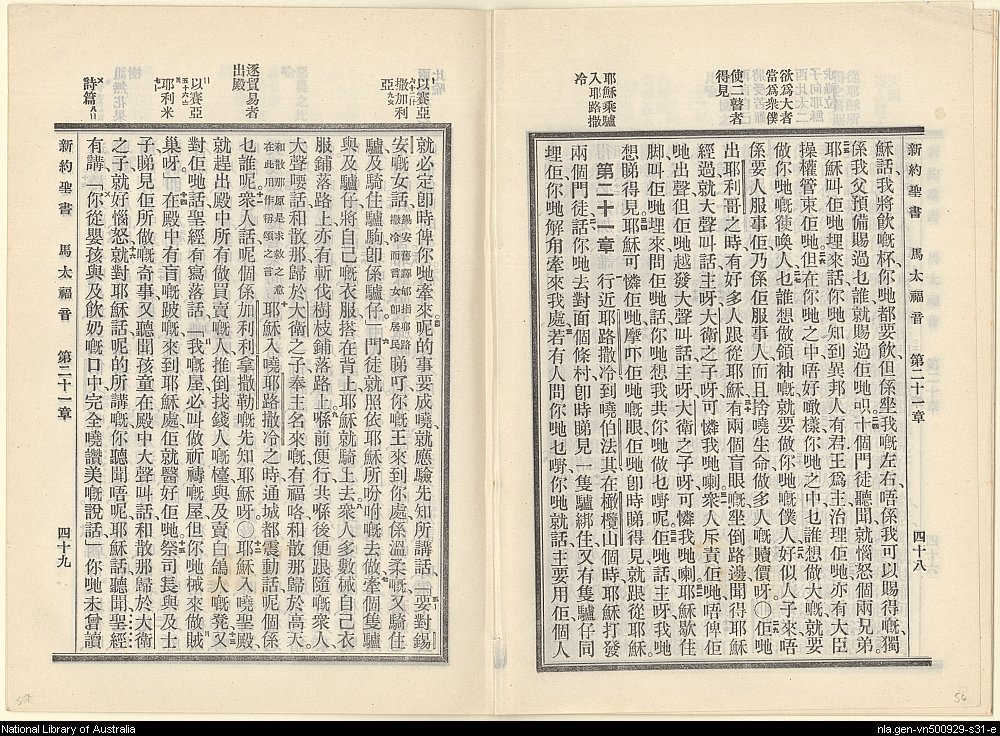 欲爲大者
當爲衆僕
使二瞽者
得見
耶穌乘驢
入耶路撒
冷
新約聖書 馬太福音 第二十一章 四十八
穌話我將飲嘅杯你哋都要飲但係坐我嘅左右唔係我可以賜得嘅獨
係我父預備賜過乜誰就賜過佢哋呮十個門徒聽聞就惱怒個兩兄弟
耶穌叫佢哋埋來話你哋知到異邦人有君王爲主治理佢哋亦有大臣
操權管束佢哋但在你哋之中唔好噉樣你哋之中乜誰想做大嘅就要
做你哋嘅使喚人乜誰想做領袖嘅就要做你哋嘅僕人好似人子來唔
係要人服事佢乃係佢服事人而且捨嘵生命做多人嘅贖價呀佢哋
出耶利哥之時有好多人跟從耶穌有兩個盲眼嘅坐倒路邊聞得耶穌
經過就大聲叫話主呀大衛之子呀可憐我哋喇衆人斥責佢哋唔俾佢
哋出聲但佢哋越發大聲叫話主呀大衛之子呀可憐我哋喇耶穌歇住
脚叫佢哋埋來問佢哋話你哋想我共你哋做乜嘢呢佢哋話主呀我哋
想睇得見耶穌可憐佢哋摩吓佢哋嘅眼佢哋卽時睇得見就跟從耶穌
第二十一章 行近耶路撒冷到嘵伯法其在橄欖山個時耶穌打發
兩個門徒話你哋去對面個條村卽時睇見一隻驢綁住又有隻驢仔同
埋佢你哋解角牽來我處若有人問你哋乜嘢你哋就話主要用佢個人
以賽亞
六十二 十一
撒加利
亞九 九
逐貿易者
出殿
以賽亞
五十六 七
耶利米
七 十一
詩篇八 二
就必定卽時俾你哋牽來呢的事要成嘵就應驗先知所講話「要對錫
安嘅女話錫安舊譯郇指耶路撒冷而言女卽居民睇吓你嘅王來到你處係溫柔嘅又騎住
驢及騎住驢駒卽係驢仔門徒就照依耶穌所吩咐嘅去做牽個隻驢
與及驢仔將自己嘅衣服搭在背上耶穌就騎上去衆人多數械自己衣
服鋪落路上亦有斬伐樹枝鋪落路上喺前便行共喺後便跟隨嘅衆人
大聲嗌話和散那歸於大衛之子奉主名來嘅有福咯和散那歸於高天
和散那原是求救之意在此用作稱頌之言耶穌入嘵耶路撒冷之時通城都震動話呢個係
乜誰呢衆人話呢個係加利利拿撒勒嘅先知耶穌呀耶穌入嘵聖殿
就趕出殿中所有做買賣嘅人推倒找錢人嘅檯與及賣白鴿人嘅凳又
對佢哋話聖經有寫落話「我嘅屋必叫做祈禱嘅屋但你哋械來做做賊
巢呀」在殿中有盲嘅跛嘅來到耶穌處佢就醫好佢哋祭司長與及士
子睇見佢所做嘅奇事又聽聞孩童在殿中大聲叫話和散那歸於大衛
之子就好惱怒就對耶穌話呢的所講嘅你聽聞唔呢耶穌話聽聞聖經
有講「你從嬰孩與及飲奶嘅口中完全嘵讚美嘅說話」你哋未曾讀
新約聖書 馬太福音 第二十一章 四十九
National Library of Australia
nla.gen-vn500929-s31-e